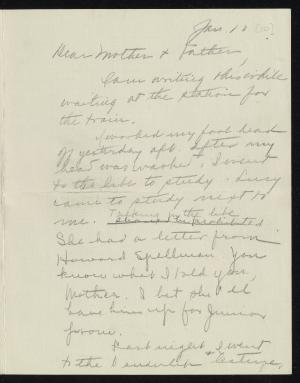 Jan. 10 [10]
Dear Mother & Father,
I am writing this while
waiting at the station for
the train.
I washed my fool head
of yesterday aft. After my
head was washed, I went
to the libe to study. Lucy
came to study next to
me. Talking in the libe
is prohibited
She had a letter from
Howard Spellman. You
know what I told you,
Mother. I bet she'll
have him up for Junior
prom.
Last night, I went
to the lecture,